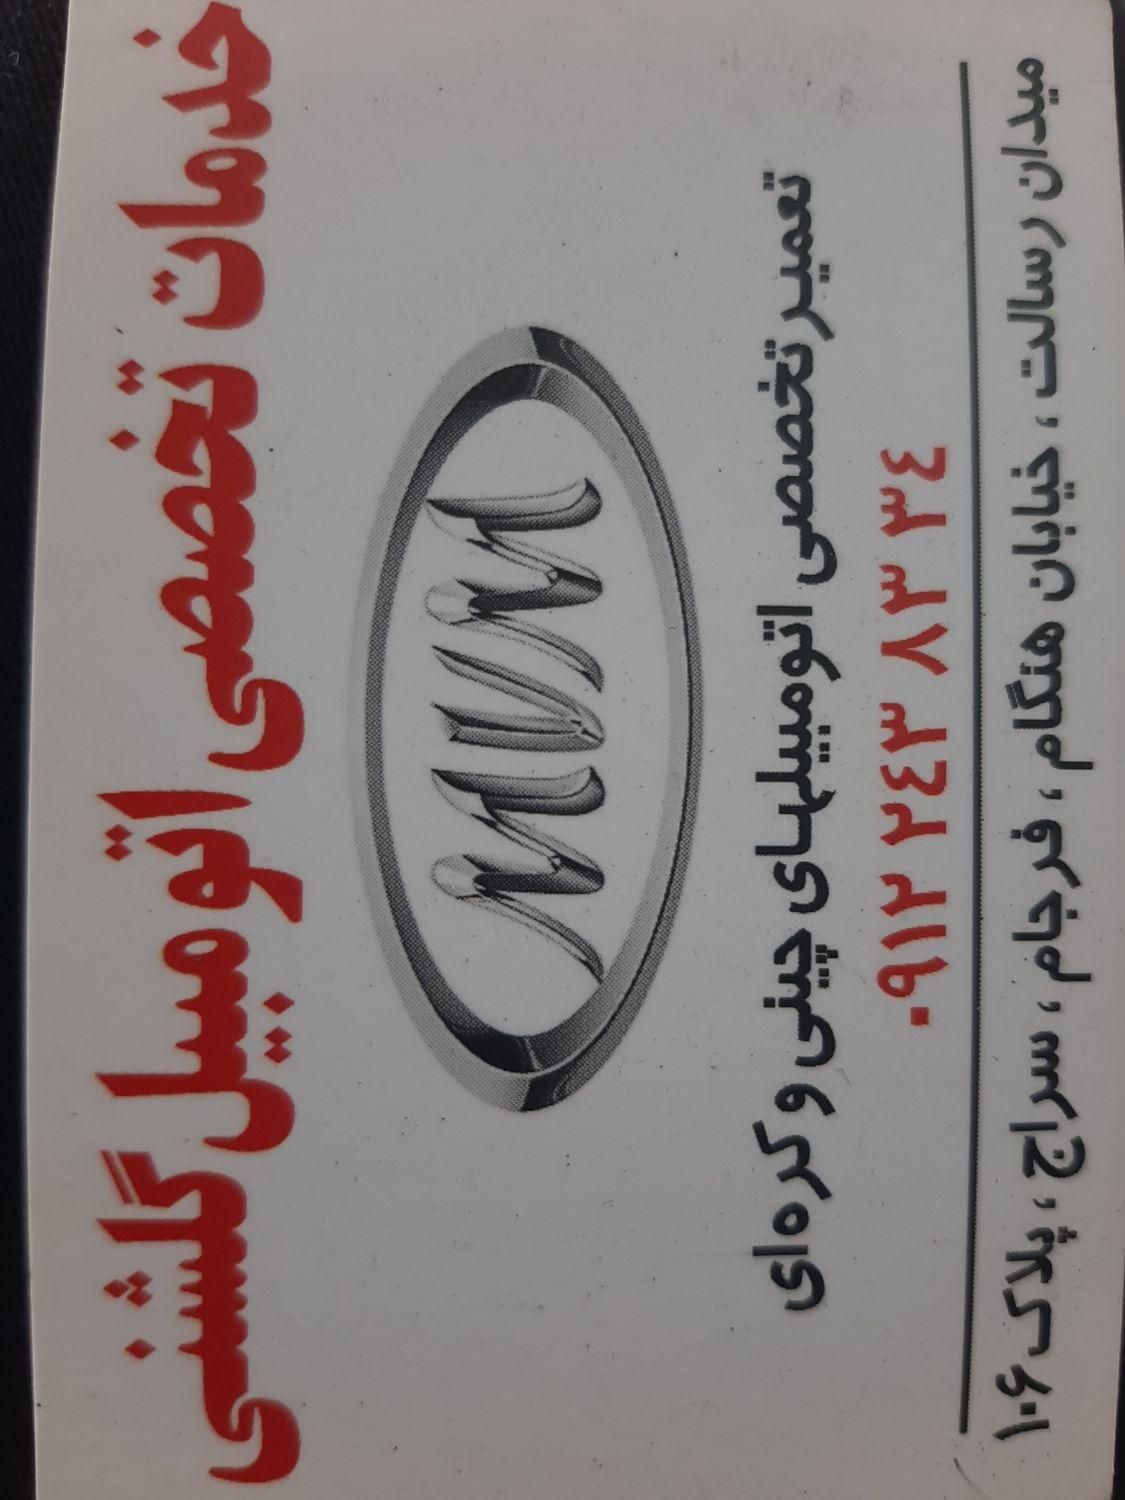 خدمات تخصصی اتومبیل گلشنی
MVM
تعمیر تخصصی اتومبیلهای چینی و کره‌ای
۰۹۱۲ ۲٤۳ ۸۳ ۳٤
میدان رسالت ، خیابان هنگام ، فرجام ، سراج ، پلاک ۱۰۶